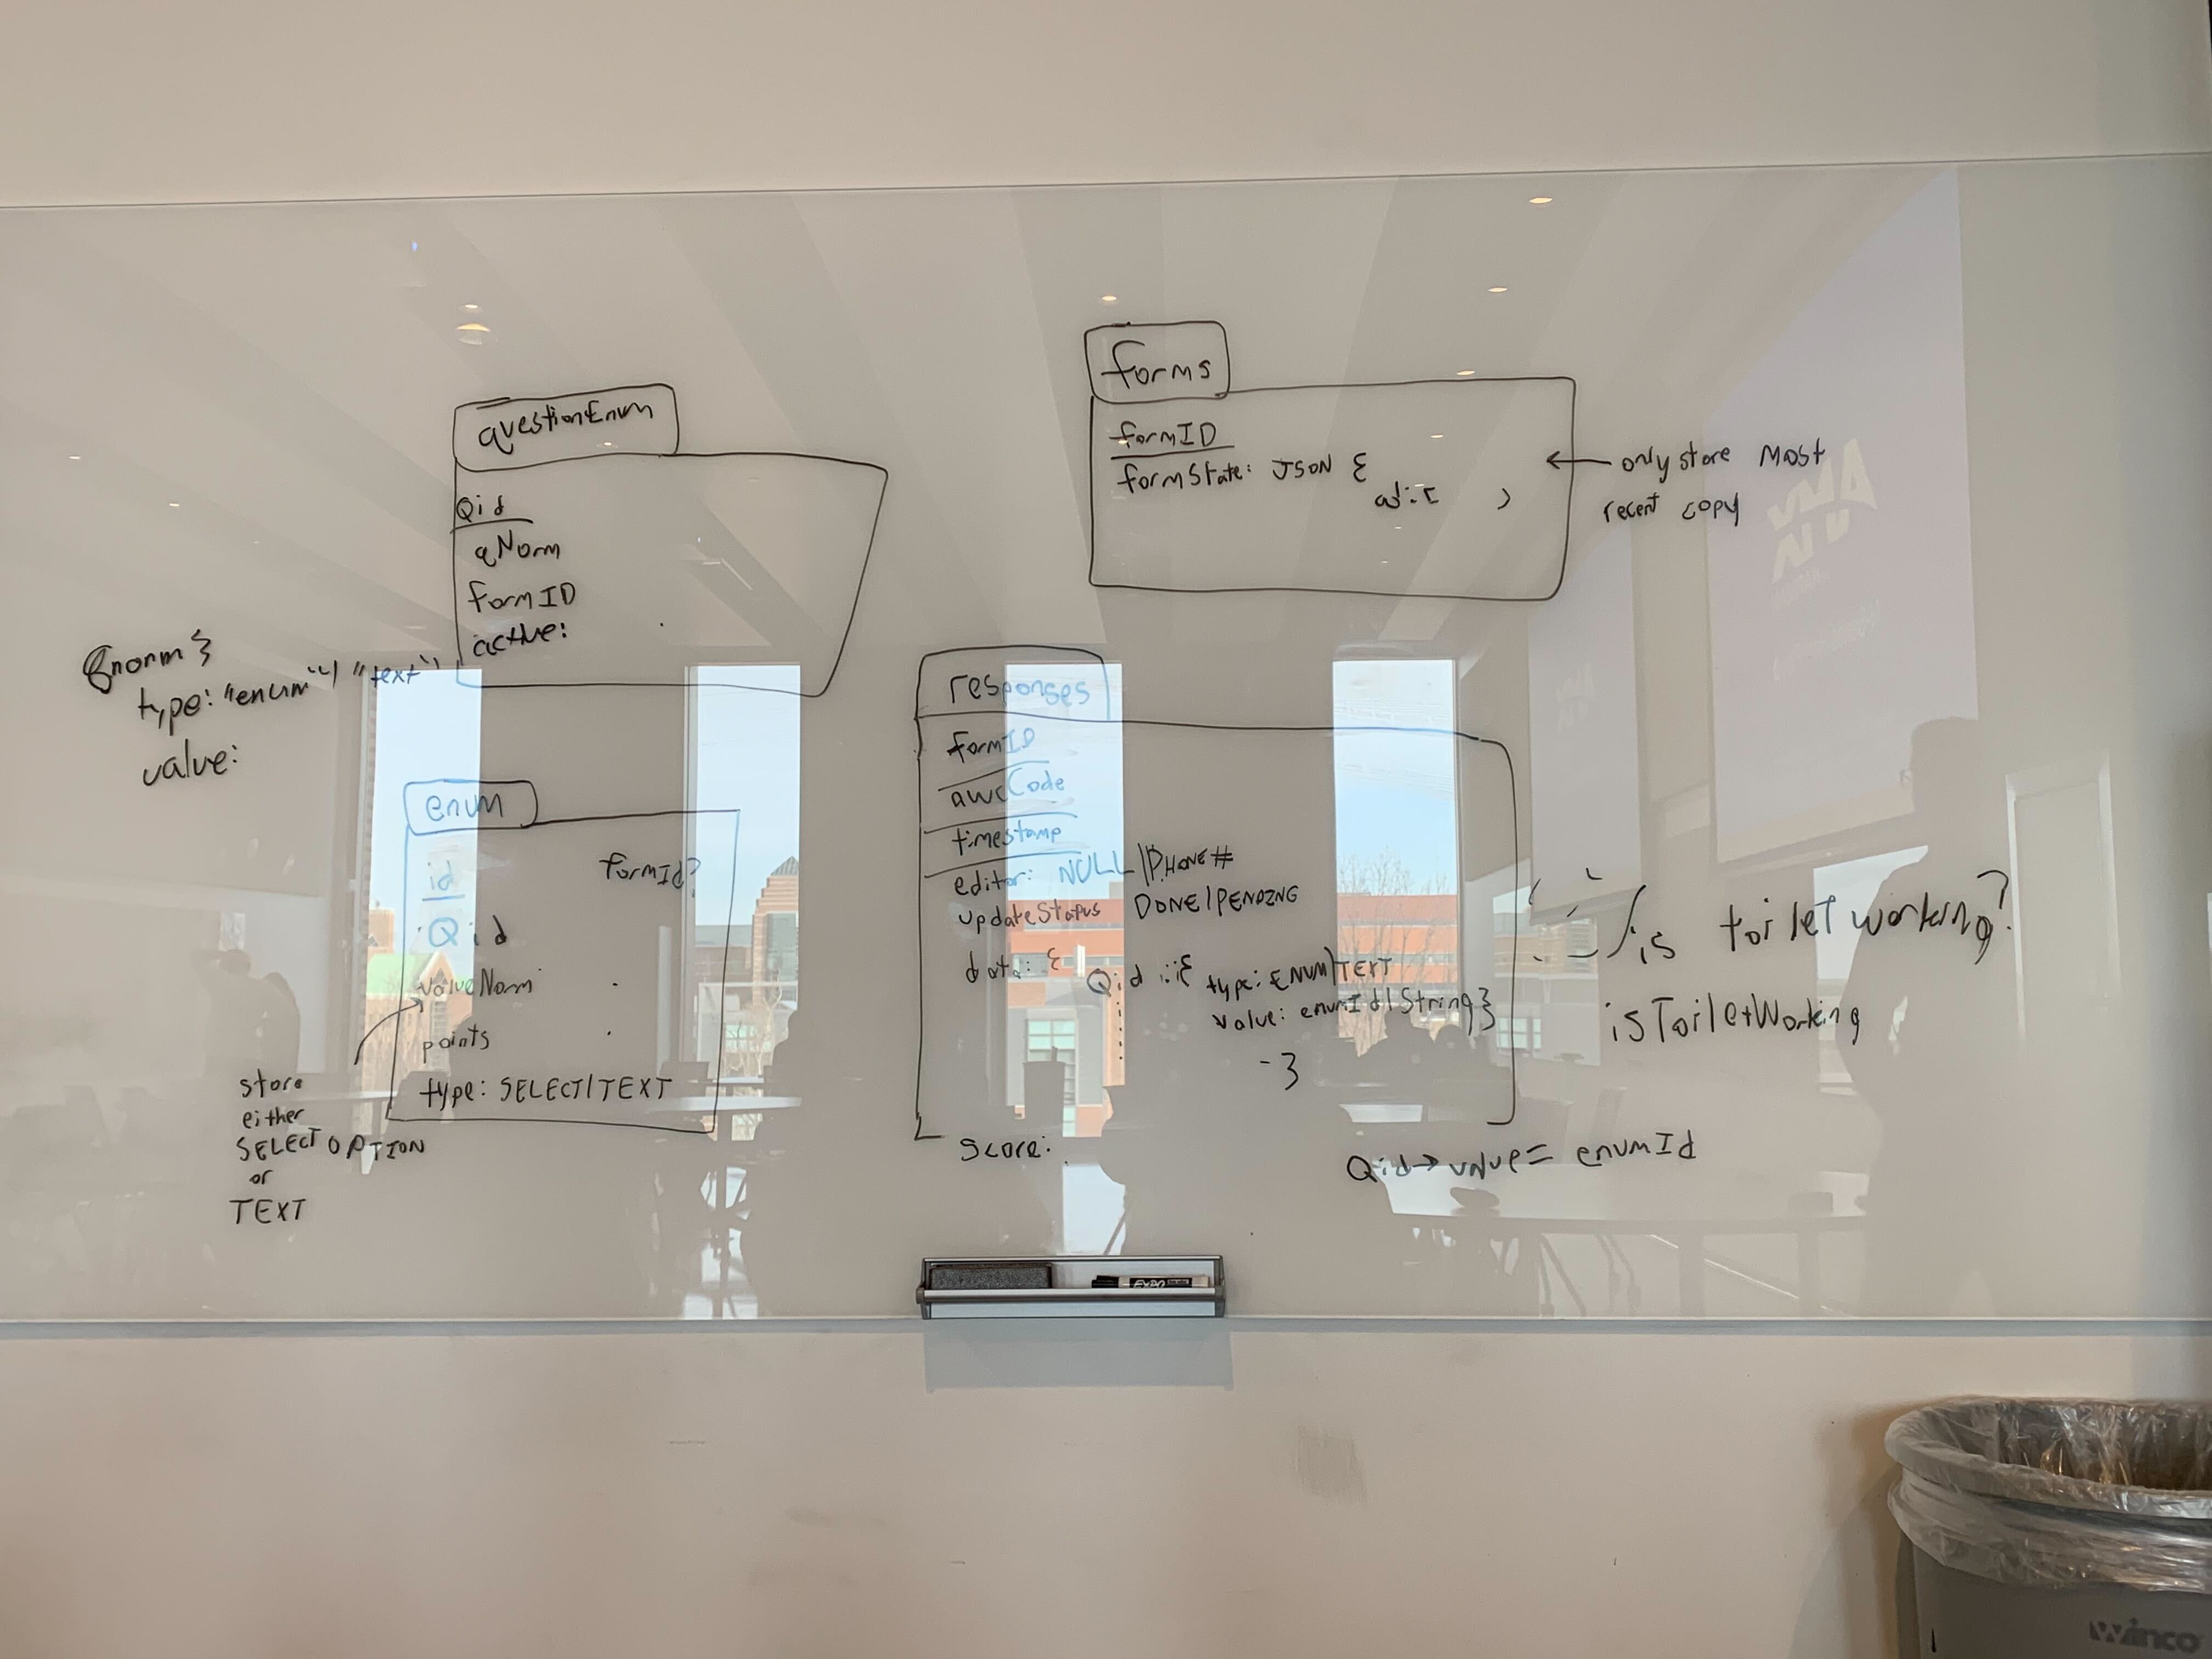 questionEnum
Qid
qNorm
formID
active:
Qnorm {
type: "enum" | "text"
value:
enum
id
formId?
Qid
valueNorm
points
type: SELECT/TEXT
store
either
SELECT OPTION
or
TEXT
forms
formID
formState: JSON {
only store most
recent copy
responses
formID
awcCode
timestamp
editor: NULL | PHONE #
updateStatus DONE/PENDING
data: {
Qid :{ type: ENUM|TEXT
value: enumId|String}
score:
Qid → value = enumId
is toilet working?
isToiletWorking
EXPO
winco